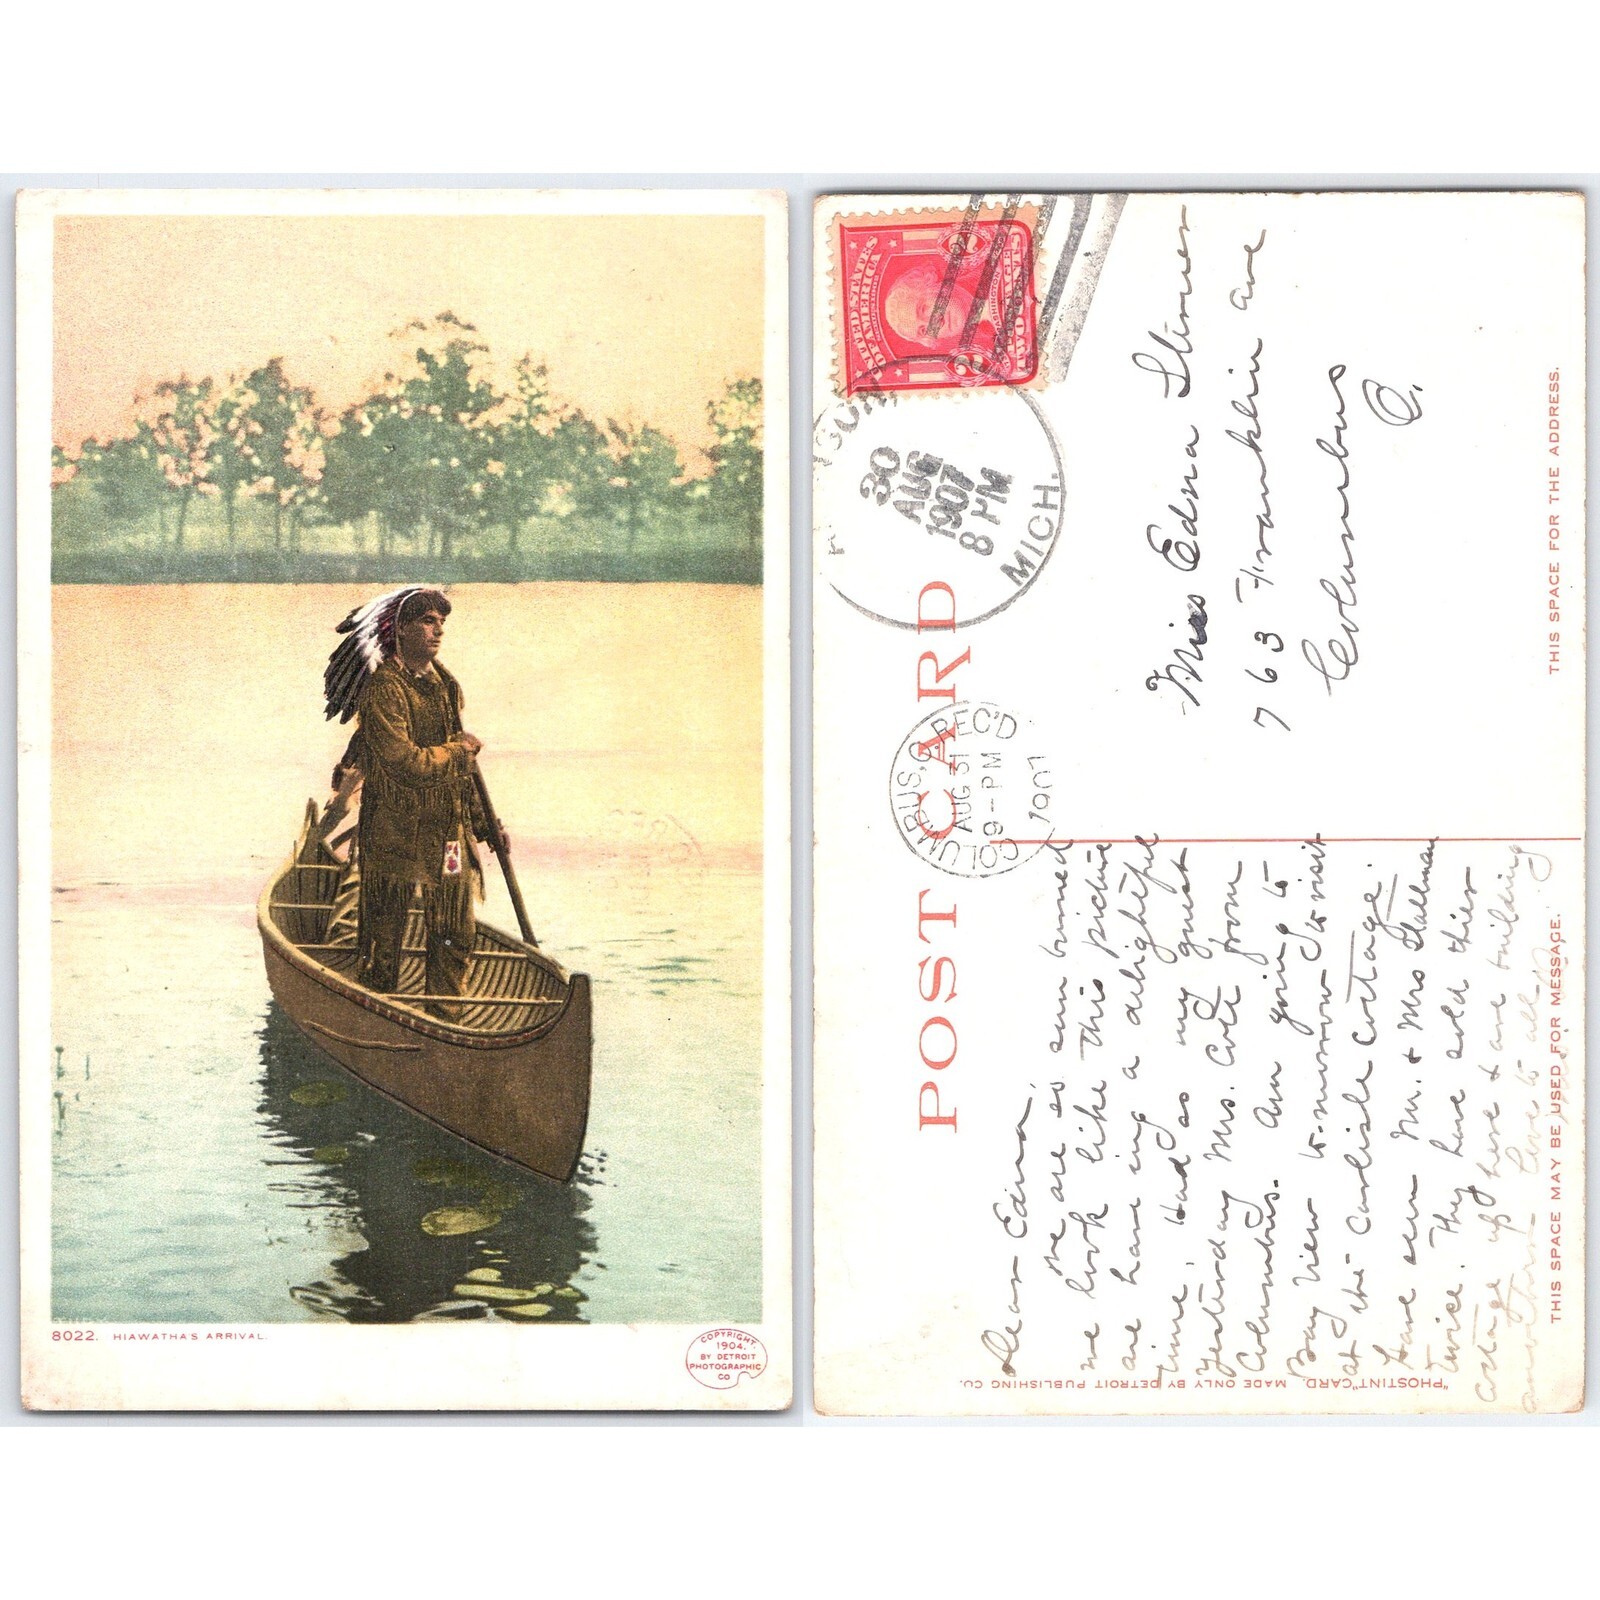 8022. HIAWATHA'S ARRIVAL.
COPYRIGHT,
1904,
BY DETROIT
PHOTOGRAPHIC
CO
UNITED STATES
OF AMERICA
WASHINGTON
POSTAGE
2 2
TWO CENTS
30
AUG
1907
8 PM
MICH.
POST CARD
COLUMBUS, O. REC'D
AUG 31
9-PM
1907
Miss Edna
763 Franklin ave
Columbus
O.
THIS SPACE FOR THE ADDRESS.
Dear Edna,
We are so sun burned
we look like this picture
are having a delightful
time. Had as my guest
yesterday Mrs. Cole from
Columbus. Am going to
Bay View to-morrow to visit
at the Carlisle cottage.
Have seen Mr. + Mrs
twice. They have sold their
cottage up here + are building
another
THIS SPACE MAY BE USED FOR MESSAGE.
"PHOSTINT" CARD. MADE ONLY BY DETROIT PUBLISHING CO.